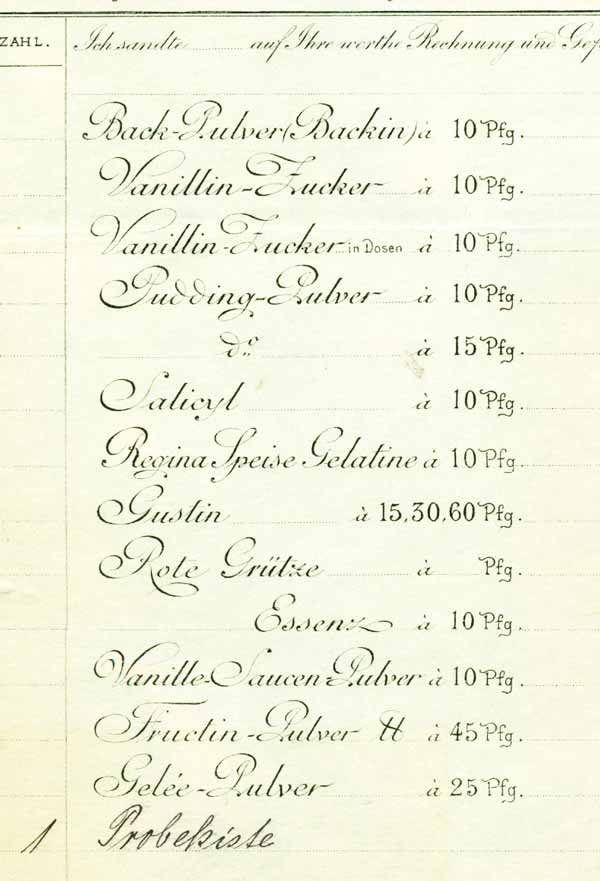 ZAHL. Ich sandte auf Ihre werthe Rechnung und Gef
Back-Pulver (Backin) à 10 Pfg.
Vanillin-Zucker à 10 Pfg.
Vanillin-Zucker in Dosen à 10 Pfg.
Pudding-Pulver à 10 Pfg.
do à 15 Pfg.
Salicyl à 10 Pfg.
Regina Speise Gelatine à 10 Pfg.
Gustin à 15,30,60 Pfg.
Rote Grütze à Pfg.
Essenz à 10 Pfg.
Vanille-Saucen-Pulver à 10 Pfg.
Fructin-Pulver ℔ à 45 Pfg.
Gelée-Pulver à 25 Pfg.
1 Probekiste